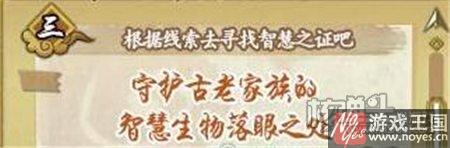 三
根据线索去寻找智慧之证吧
守护古老家族的
智慧生物落眼之处
游戏王国
www.noyes.cn